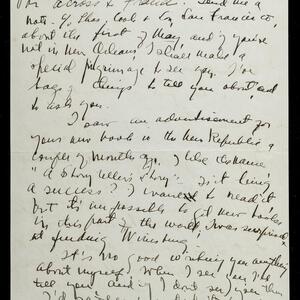 across &
Send me a
note. %, Thos. Cook & Co, San Francisco,
about the first of May, and if you're
not in New Orleans I shall make a
special pilgrimage to see you. I've
bags of things to tell you about and
to ask you.
I saw an advertisement for
your new book in the New Republic a
couple of months ago. I like the name
"A Story Teller's Story" — is it being
a success? I wanted to read it
but it's impossible to get new books
in this part of the world. I was surprised
at finding Winesburg.
It's no good writing you anything
about myself. When I see you I'll
tell you and if I don't see you then
I'd